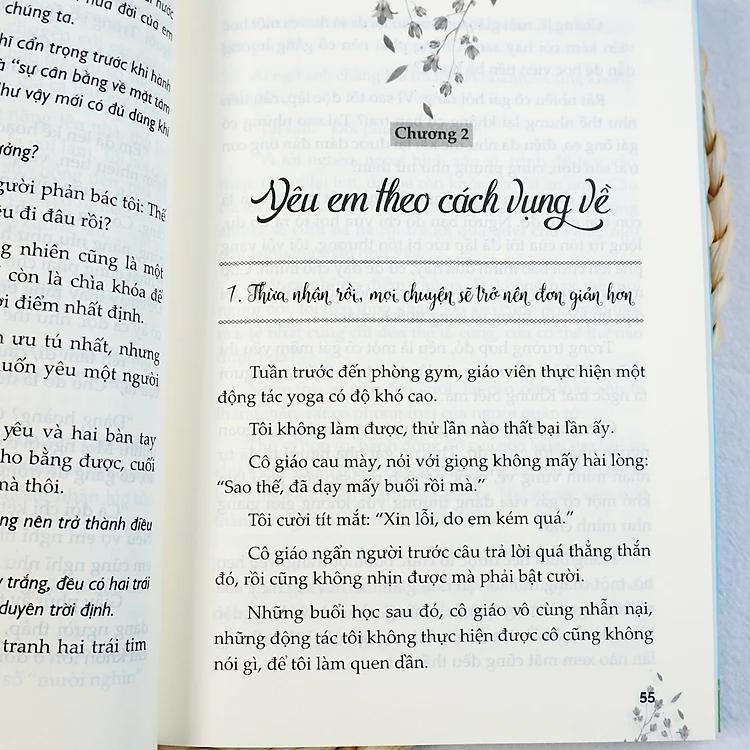 chúng ta.
hĩ cẩn trọng trước khi hành
à "sự cân bằng về mặt tâm
như vậy mới có đủ dũng khí
ưởng?
gười phản bác tôi: Thế
êu đi đâu rồi?
g nhiên cũng là một
còn là chìa khóa để
ời điểm nhất định.
n ưu tú nhất, nhưng
uốn yêu một người
yêu và hai bàn tay
ho bằng được, cuối
mà thôi.
ng nên trở thành điều
y trắng, đều có hai trái
duyên trời định.
tranh hai trái tim
Chương 2
Yêu em theo cách vụng về
1. Thừa nhận rồi, mọi chuyện sẽ trở nên đơn giản hơn
Tuần trước đến phòng gym, giáo viên thực hiện một
động tác yoga có độ khó cao.
Tôi không làm được, thử lần nào thất bại lần ấy.
Cô giáo cau mày, nói với giọng không mấy hài lòng:
"Sao thế, đã dạy mấy buổi rồi mà."
Tôi cười tít mắt: "Xin lỗi, do em kém quá."
Cô giáo ngẩn người trước câu trả lời quá thẳng thắn
đó, rồi cũng không nhịn được mà phải bật cười.
Những buổi học sau đó, cô giáo vô cùng nhẫn nại,
những động tác tôi không thực hiện được cô cũng không
nói gì, để tôi làm quen dần.
55